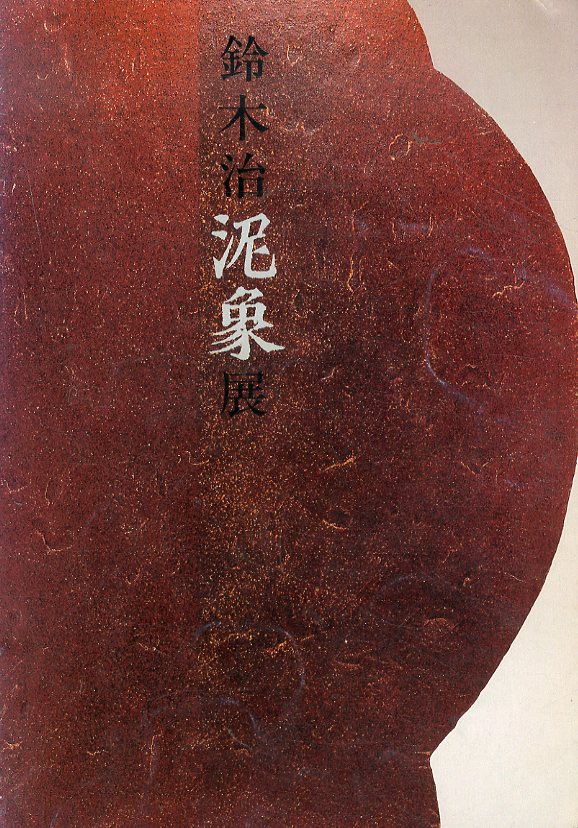 鈴木治泥象展